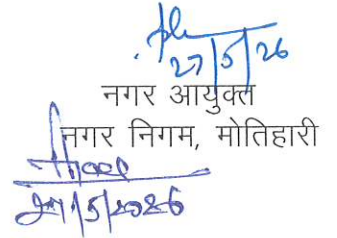 27/5/26
नगर आयुक्त
नगर निगम, मोतिहारी
27/5/2026